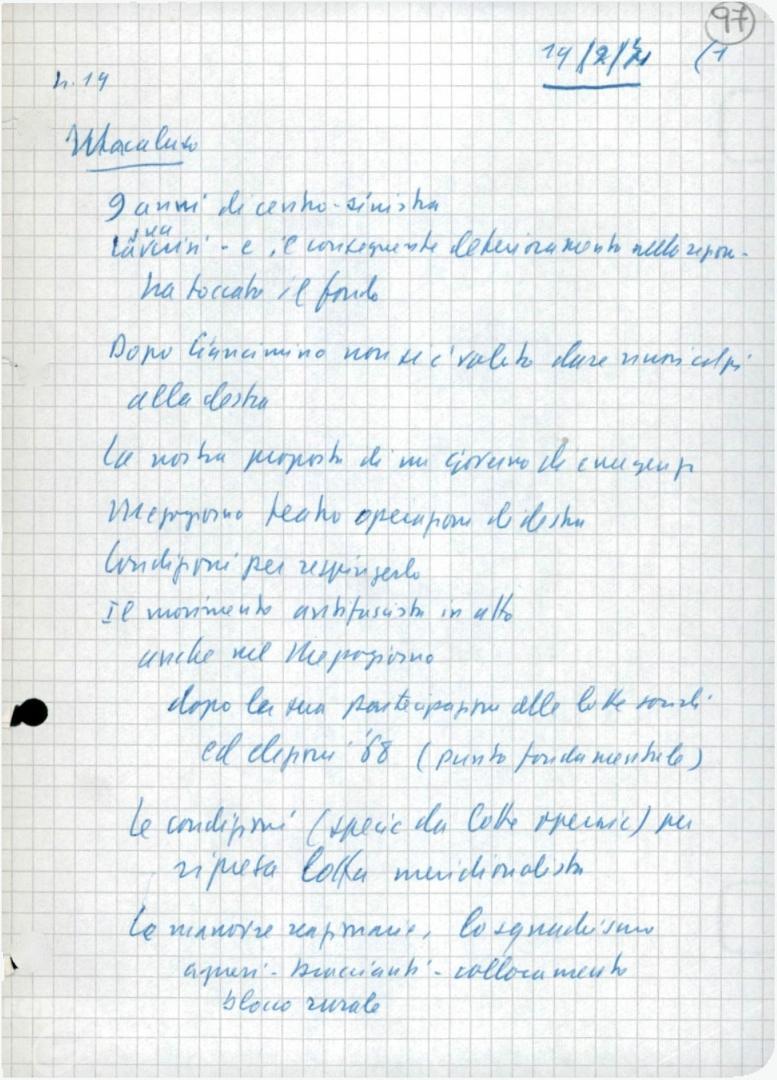 97
19/2/71 (1
h. 19
Macaluso
9 anni di centro-sinistra
sua
- e il conseguente deterioramento nella region.
ha toccato il fondo
Dopo Ciancimino non si è voluto dare nuovi colpi
alla destra
La nostra proposta di un governo di emergenza
Mezzogiorno teatro operazioni di destra
Condizioni per respingerlo
Il movimento antifascista in atto
anche nel Mezzogiorno
dopo la sua partecipazione alle lotte sociali
ed elezioni '68 (punto fondamentale)
Le condizioni (specie da lotte operaie) per
ripresa lotta meridionalista
Le manovre reazionarie, lo squadrismo
agrari - braccianti - collocamento
blocco rurale